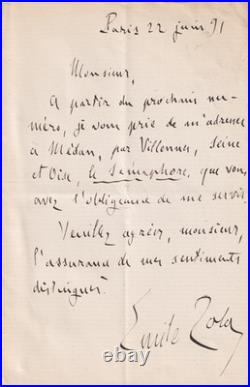 Paris 22 juin 91
Monsieur,
A partir du prochain nu-
méro, je vous prie de m'adresser
à Médan, par Villennes, Seine
et Oise, le Sémaphore, que vous
avez l'obligeance de me servir.
Veuillez agréer, monsieur,
l'assurance de mes sentiments
distingués
Emile Zola